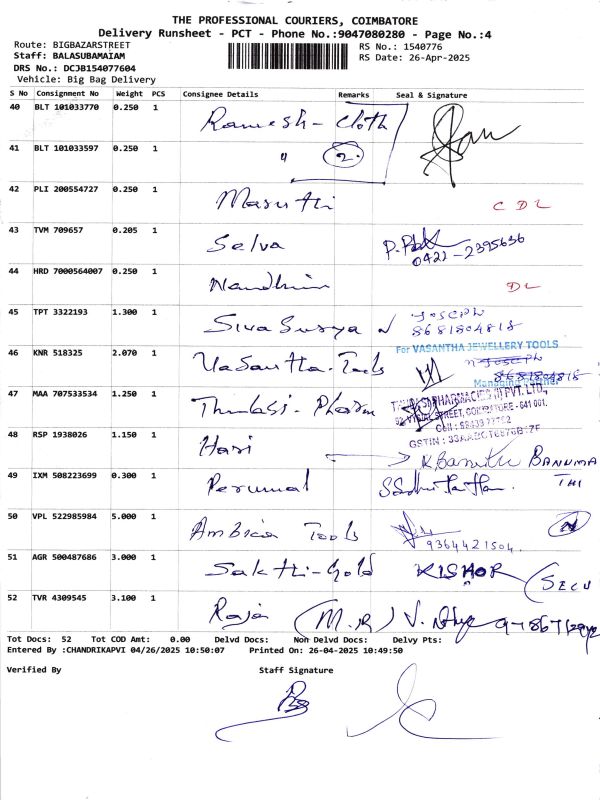 THE PROFESSIONAL COURIERS, COIMBATORE
Delivery Runsheet - PCT - Phone No.:9047080280 - Page No.:4
Route: BIGBAZARSTREET
RS No.: 1540776
Staff: BALASUBAMAIAM
RS Date: 26-Apr-2025
DRS No.: DCJB154077604
Vehicle: Big Bag Delivery
S No Consignment No Weight PCS Consignee Details Seal & Signature
40 BLT 101033770 0.250 1 Ramesh - Cloth
41 BLT 101033597 0.250 1 " 2
42 PLI 200554727 0.250 1 Maruthi CDL
43 TVM 709657 0.205 1 Selva 0421-2395636
44 HRD 7000564007 0.250 1 Nandhini DL
45 TPT 3322193 1.300 1 Siva Surya JOSEPH
8681804818
46 KNR 518325 2.070 1 Vasantha. Tools
For VASANTHA JEWELLERY TOOLS
8681804818
47 MAA 707533534 1.250 1 Thulasi - Pharm
48 RSP 1938026 1.150 1 Hari
49 IXM 508223699 0.300 1 Perumal
50 VPL 522985984 5.000 1 Ambica Tools 9364421504
51 AGR 500487686 3.000 1 Sakthi-Gold KISHOR
52 TVR 4309545 3.100 1 Raja (M.R)
Tot Docs: 52 Tot COD Amt: 0.00 Delvd Docs: Non Delvd Docs: Delvy Pts:
Entered By :CHANDRIKAPVI 04/26/2025 10:50:07 Printed On: 26-04-2025 10:49:50
Verified By Staff Signature